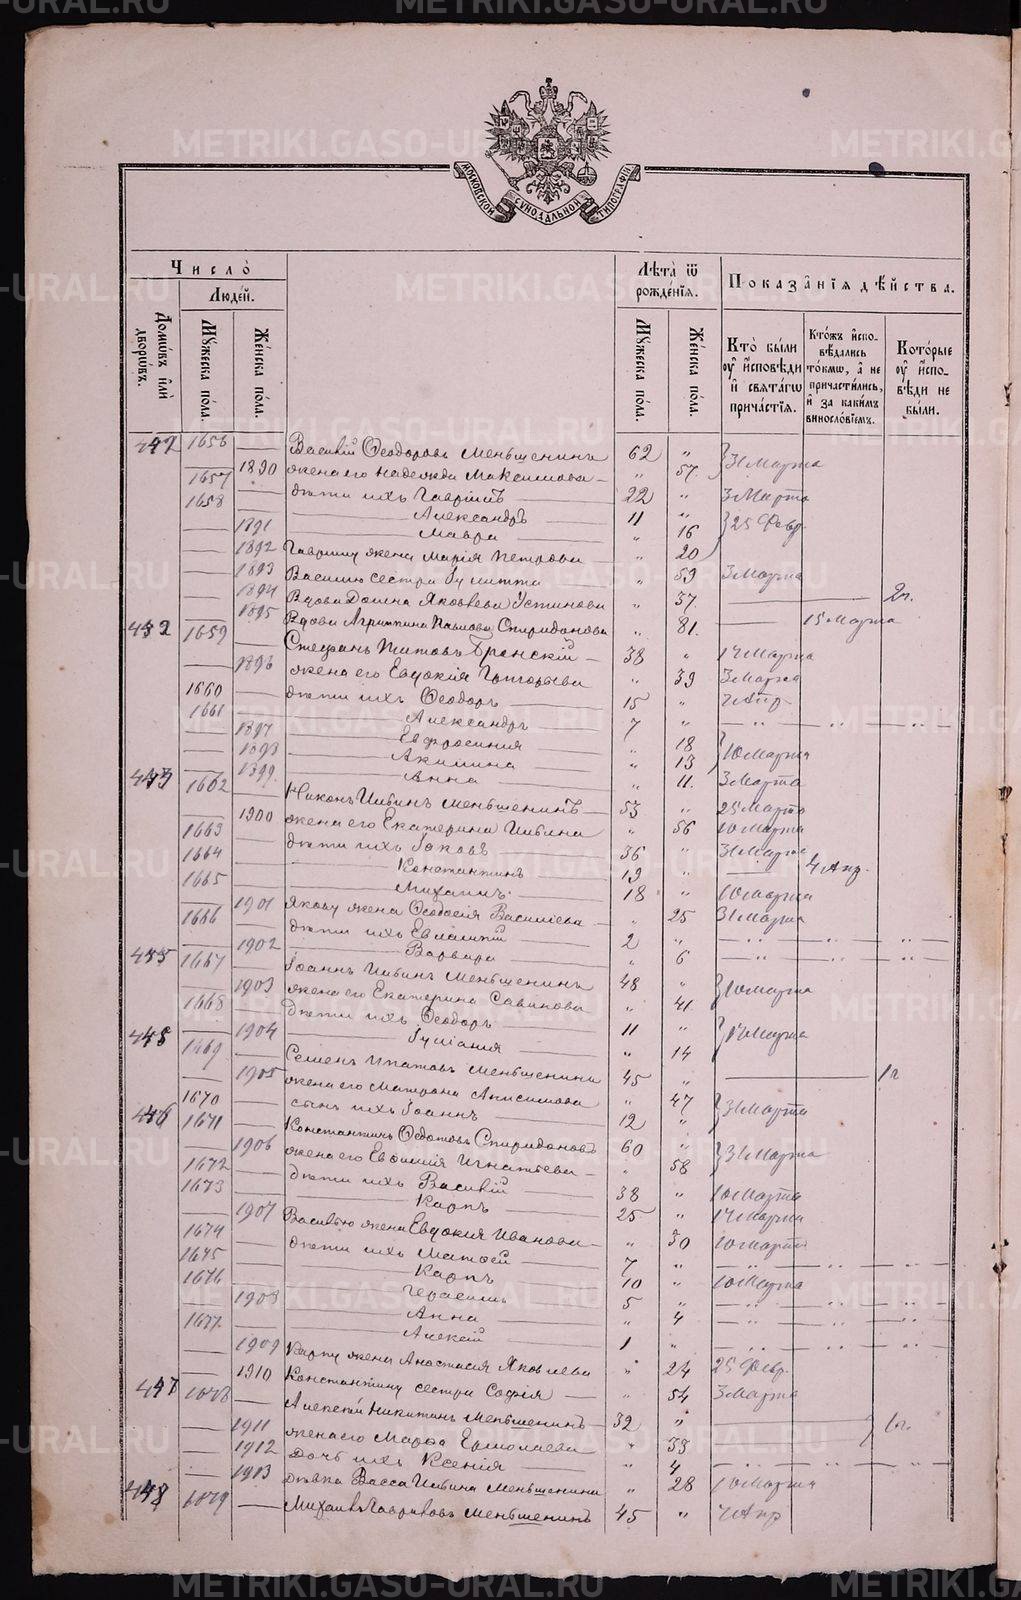 METRIKI.GASO-URAL.RU
МОСКОВСКОЙ СѴНОДАЛЬНОЙ ТИПОГРАФІИ
Число̀
Людéй.
Домѡ́въ и҆лѝ дворѡ́въ.
Мꙋ́жеска по́ла.
Же́нска по́ла.
Лѣта̀ ѿ рожде́нїѧ.
Мꙋ́жеска по́ла.
Же́нска по́ла.
Показа̂нїѧ дѣ́йства.
Кто̀ бы́ли ᲂу҆ и҆сповѣ́ди и҆ свѧта́гѡ причастїѧ.
Кто́жъ и҆спо-
вѣ́дались то́кмѡ, а҆ не причасти́лись, и҆ за каки́мъ винослѡ́вїемъ.
Кото́рые ᲂу҆ и҆спо-
вѣ́ди не бы́ли.
1656 — Василій Ѳеодоровъ Меньшенинъ 62 „ } 31 Марта
— 1890 жена его Надежда Максимова — „ 57.
1657 — дѣти ихъ Гавріилъ — 22 „ 3 Марта
1658 — Александръ — 11 „ } 25 Февр.
— 1891 — Мавра — „ 16
— 1892 Гавріилу жена Марія Петрова „ 20
— 1893 Василію сестра Іулитта „ 59 3 Марта
— 1894 Вдова Домна Яковлева Устинова „ 37. — 2 г.
— 1895 Вдова Агриппина Павлова Спиридонова „ 81. — 15 Марта
1659 Стефанъ Титовъ — 38 „ 17 Марта
— 1896 жена его Евдокія Григорьева „ 39 3 Марта
1660 — дѣти ихъ Ѳеодоръ — 15 „ 7 Апр.
1661 — Александръ — 7 „
— 1897 — Евфросинія — „ 18 } 10 Марта
— 1898 — Акилина — „ 13
— 1899 — Анна — „ 11. 3 Марта
1662 — Никонъ Ильинъ Меньшенинъ — 53 „ 25 Марта
— 1900 жена его Екатерина Ильина „ 56 10 Марта
1663 — дѣти ихъ Іаковъ 36 „ 31 Марта
1664 — Константинъ 19 „ — 4 Апр.
1665 — Михаилъ. 18 „ 10 Марта
— 1901 Якову жена Ѳеодосія Василіева — „ 25 31 Марта
1666 — дѣти ихъ Евлампій — 2 „
— 1902 — Варвара — „ 6
1667 — Іоаннъ Ильинъ Меньшенинъ 48 „ } 10 Марта
— 1903 жена его Екатерина Саввинова „ 41
1668 — дѣти ихъ Ѳеодоръ — 11 „ } 17 Марта
— 1904 — Іуліанія — „ 14
1669 — Семенъ Ипатовъ Меньшенинъ 45 „ — 1 г
— 1905 жена его Матрона Анисимова „ 47 } 31 Марта
1670 — сынъ ихъ Іоаннъ — 12 „
1671 — Константинъ Ѳедотовъ Спиридоновъ 60 „ } 31 Марта
— 1906 жена его Евѳимія Игнатьева — „ 58
1672 — дѣти ихъ Василій — 38 „ 10 Марта
1673 — Карпъ — 25 „ 17 Марта
— 1907 Василью жена Евдокія Иванова — „ 30 10 Марта
1674 — дѣти ихъ Матѳей — 7 „
1675 — Карпъ — 10 „ 10 Марта
1676 — Герасимъ 5 „
— 1908 — Анна — „ 4
1677. — Алексій — 1 „
— 1909 Карпу жена Анастасія Яковлева „ 24 25 Февр.
— 1910 Константину сестра Софія — „ 54 3 Марта
1678 — Алексѣй Никитинъ Меньшенинъ — 32 „ — } 1 г.
— 1911 жена его Марѳа Ермолаева „ 33
— 1912 дочь ихъ Ксенія — „ 4
— 1913 дѣвка Васса Ильина Меньшенина „ 28 10 Марта
448 1679 — Михаилъ Гавриловъ Меньшенинъ 45 „ 7 Апр